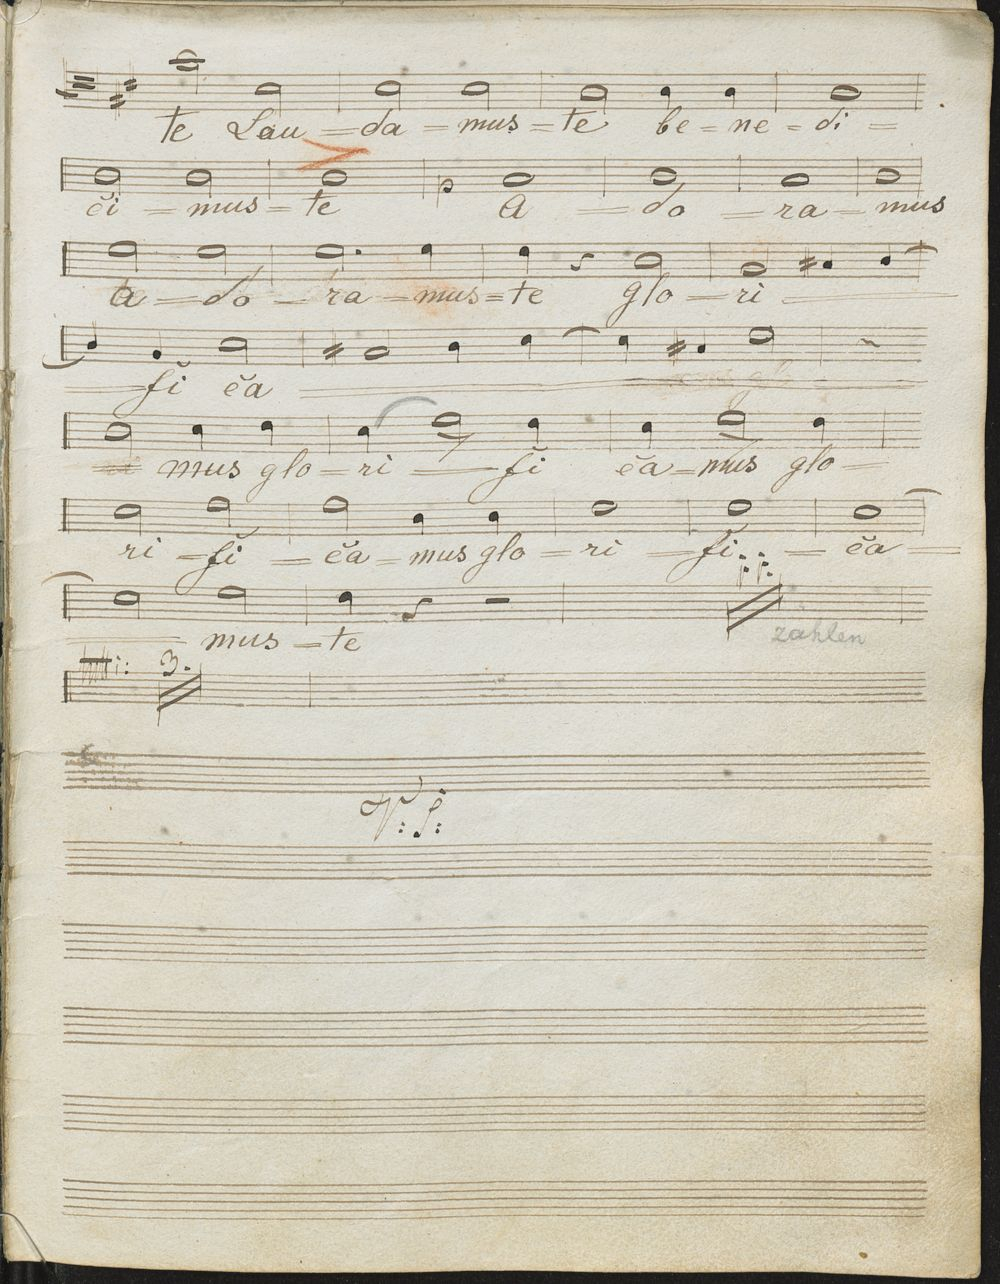 te Lau = da = mus = te be = ne = di =
či = mus = te A = do = ra = mus
a = do = ra = mus = te glo = ri =
fi ča
mus glo = ri = fi ča = mus glo =
ri = fi = ča = mus glo = ri = fi = ča =
mus = te
zahlen
3.
V: S: